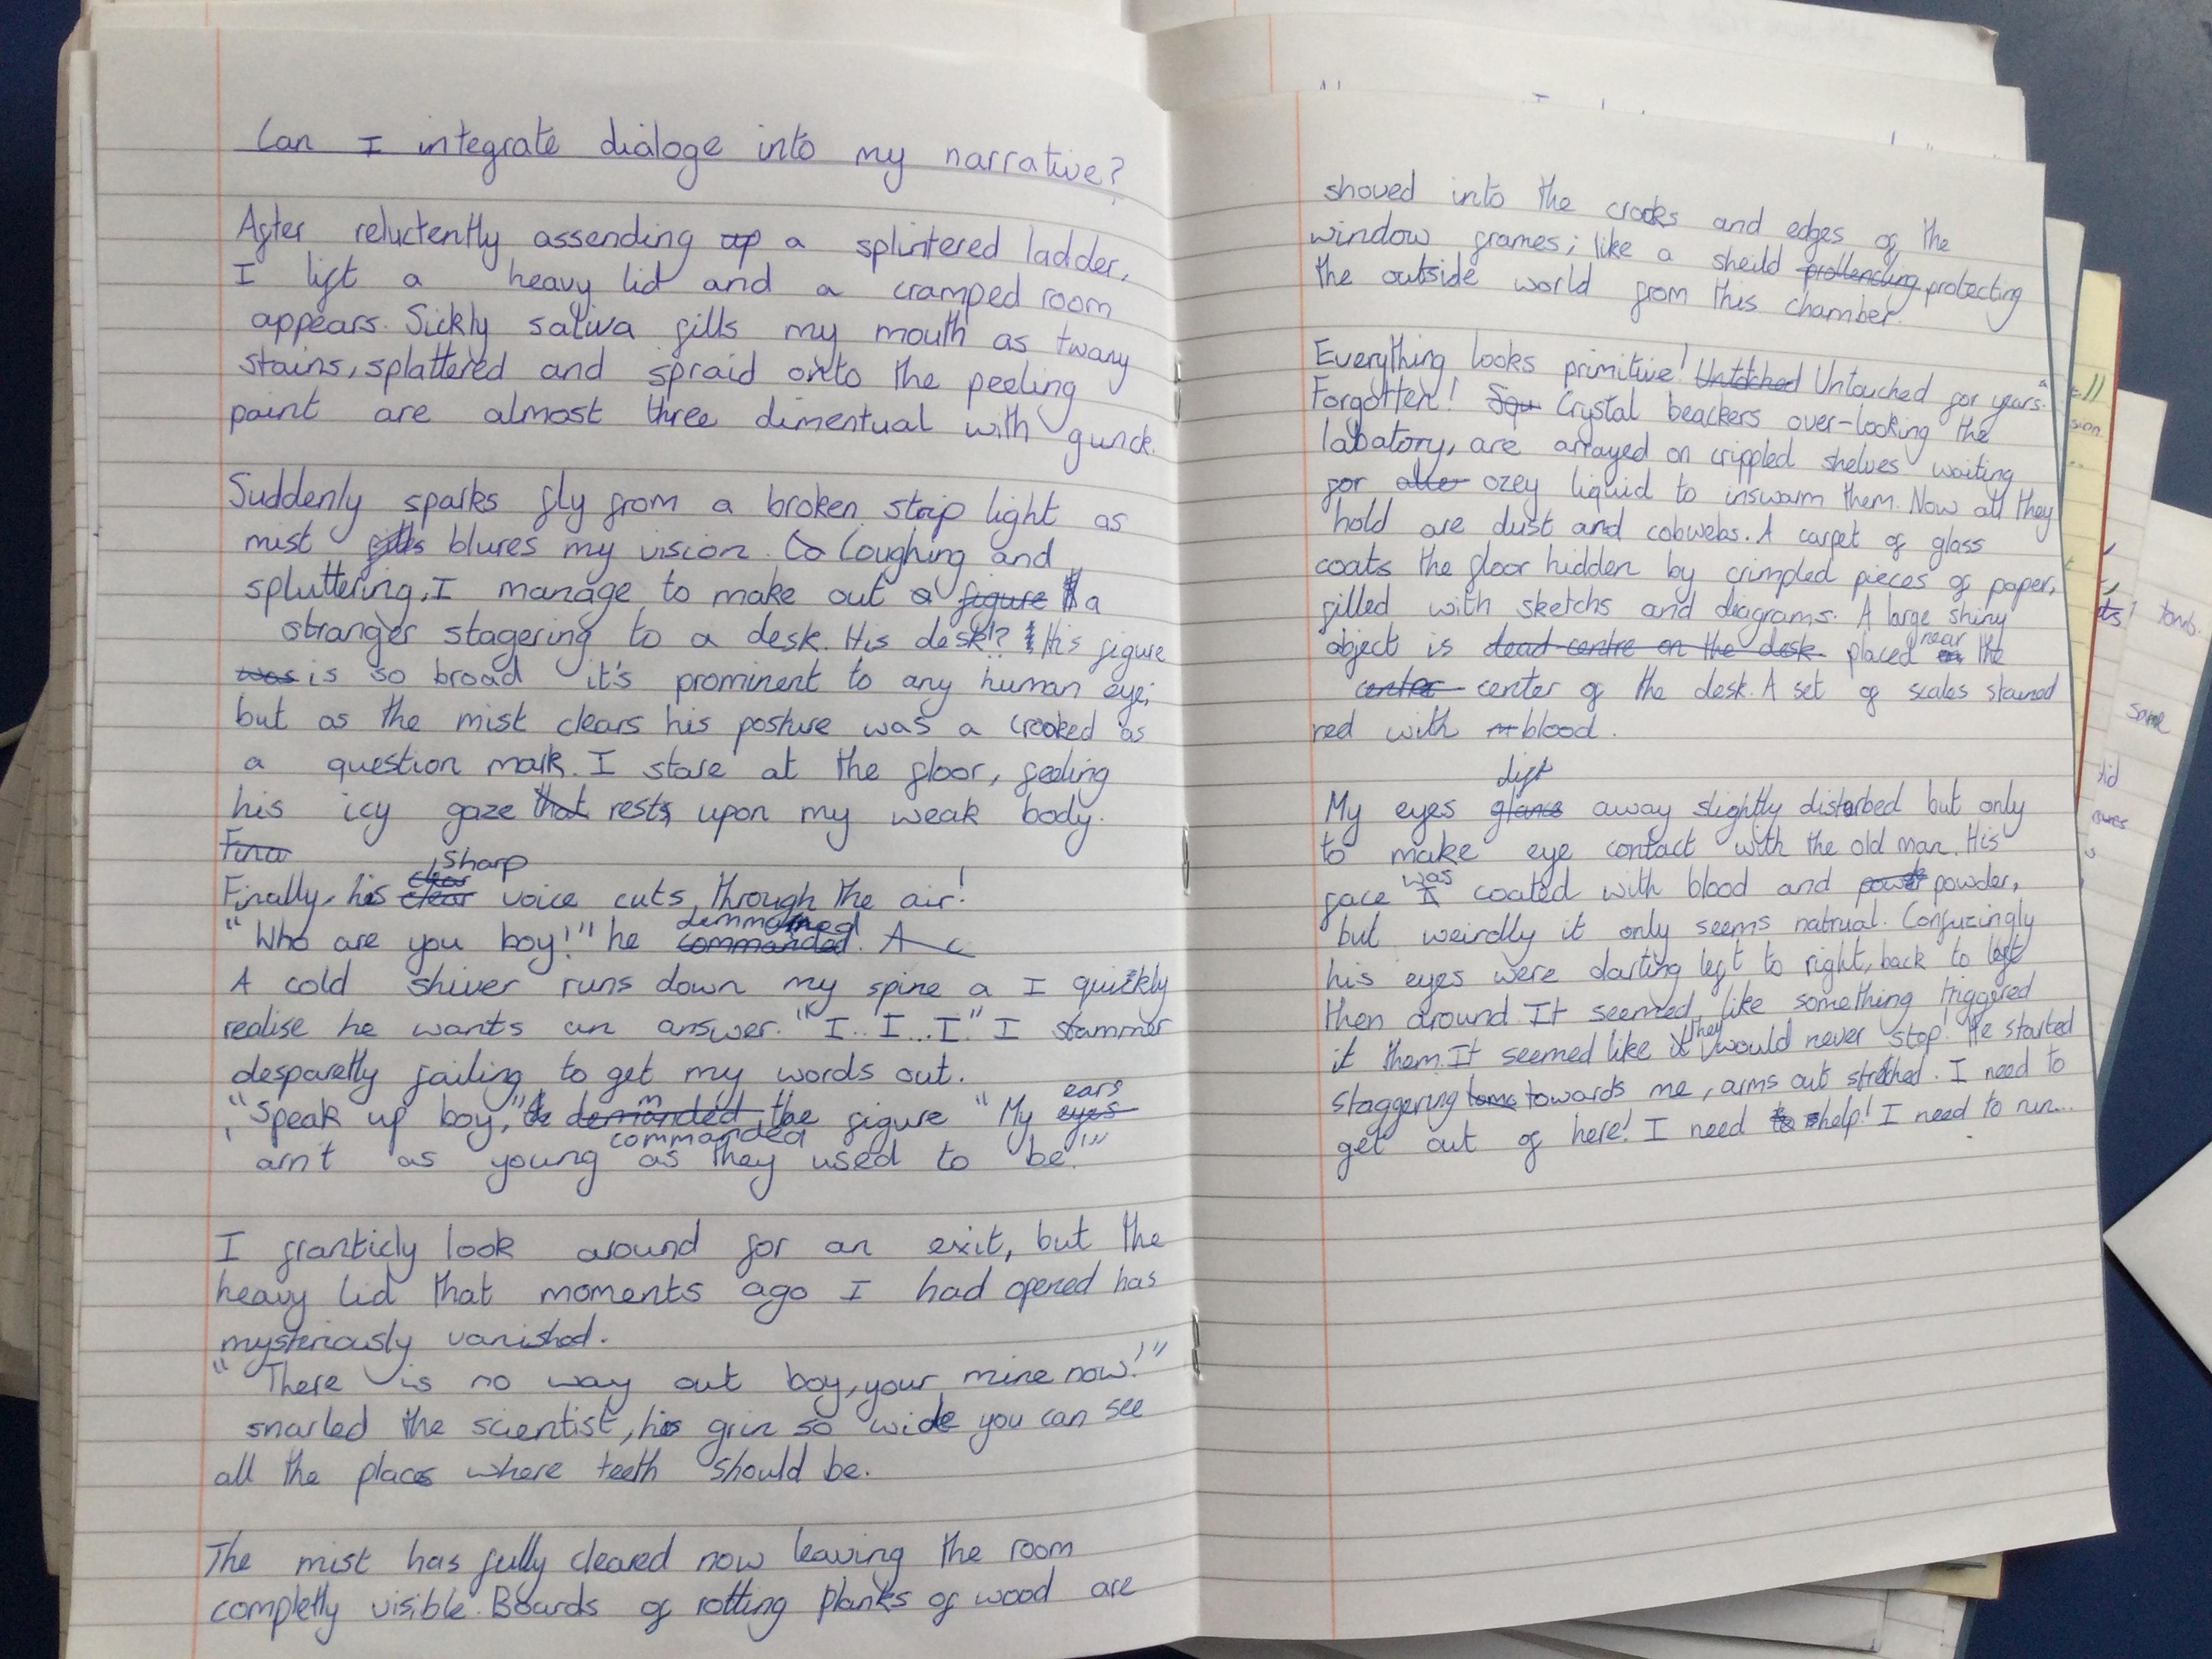 Can I integrate dialoge into my narrative?
After reluctently assending up a splintered ladder,
I lift a heavy lid and a cramped room
appears. Sickly saliva fills my mouth as twany
stains, splattered and spraid onto the peeling
paint are almost three dimentual with gunck.
Suddenly sparks fly from a broken strip light as
mist fills blures my vision. Co Coughing and
spluttering, I manage to make out a figure a
stranger stagering to a desk. His desk!? His figure
was is so broad it's prominent to any human eye;
but as the mist clears his posture was a crooked as
a question mark. I stare at the floor, feeling
his icy gaze that rests upon my weak body.
Fina
Finally, his clear sharp voice cuts through the air!
"Who are you boy!" he commanded demmanded. A c
A cold shiver runs down my spine a I quickly
realise he wants an answer. "I... I... I" I stammer
desparetly failing to get my words out.
"Speak up boy," demanded commanded the figure "My eyes ears
arn't as young as they used to be!"
I franticly look around for an exit, but the
heavy lid that moments ago I had opened has
mysteriously vanished.
"There is no way out boy, your mine now!"
snarled the scientist, his grin so wide you can see
all the places where teeth should be.
The mist has fully cleared now leaving the room
completly visible. Boards of rotting planks of wood are
shoved into the crooks and edges of the
window frames; like a sheild protecting
the outside world from this chamber.
Everything looks primitive! Untoched Untouched for years.
Forgotten! Squ Crystal beackers over-looking the
labatory, are arrayed on crippled shelves waiting
for ozey liquid to inswarm them. Now all they
hold are dust and cobwebs. A carpet of glass
coats the floor hidden by crimpled pieces of paper,
filled with sketchs and diagrams. A large shiny
object is dead centre on the desk placed near the
center center of the desk. A set of scales stained
red with blood.
My eyes glance dift away slightly distarbed but only
to make eye contact with the old man. His
face was coated with blood and powder,
but weirdly it only seems natrual. Confuzingly
his eyes were darting left to right, back to left
then around. It seemed like something triggered
it them. It seemed like it they would never stop! He started
staggering towards me, arms out streched. I need to
get out of here! I need to help! I need to run...